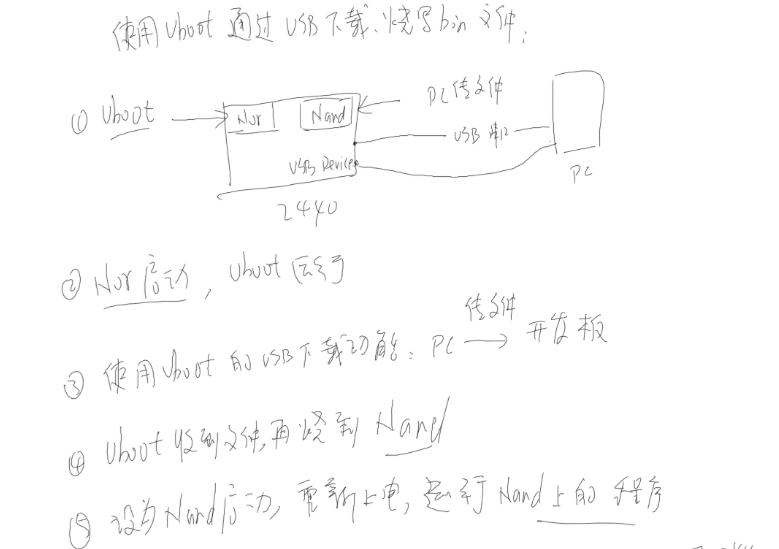 使用Uboot通过USB下载、烧写bin文件:
① Uboot
Nor
Nand
PC传文件
USB串口
USB Device
PC
2440
② Nor启动, Uboot运行
③ 使用Uboot的USB下载功能: PC 传文件 → 开发板
④ Uboot收到文件,再烧到Nand
⑤ 设为Nand启动, 重新上电, 运行Nand上的程序